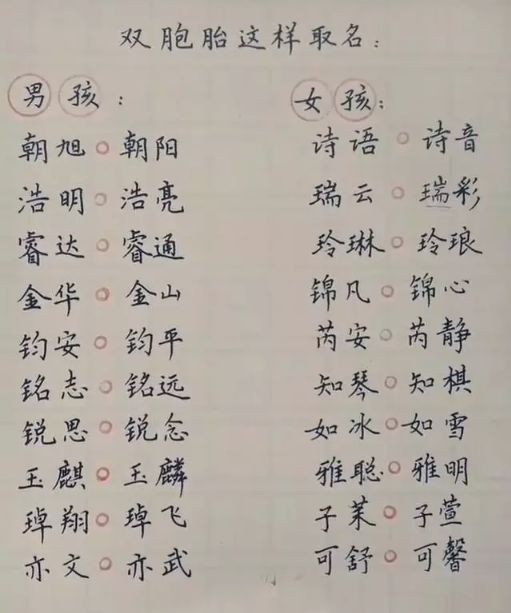 双胞胎这样取名：
男孩：
朝旭。朝阳
浩明。浩亮
睿达。睿通
金华。金山
钧安。钧平
铭志。铭远
锐思。锐念
玉麒。玉麟
琸翔。琸飞
亦文。亦武
女孩：
诗语。诗音
瑞云。瑞彩
玲琳。玲琅
锦凡。锦心
芮安。芮静
知琴。知棋
如冰。如雪
雅聪。雅明
子茉。子萱
可舒。可馨